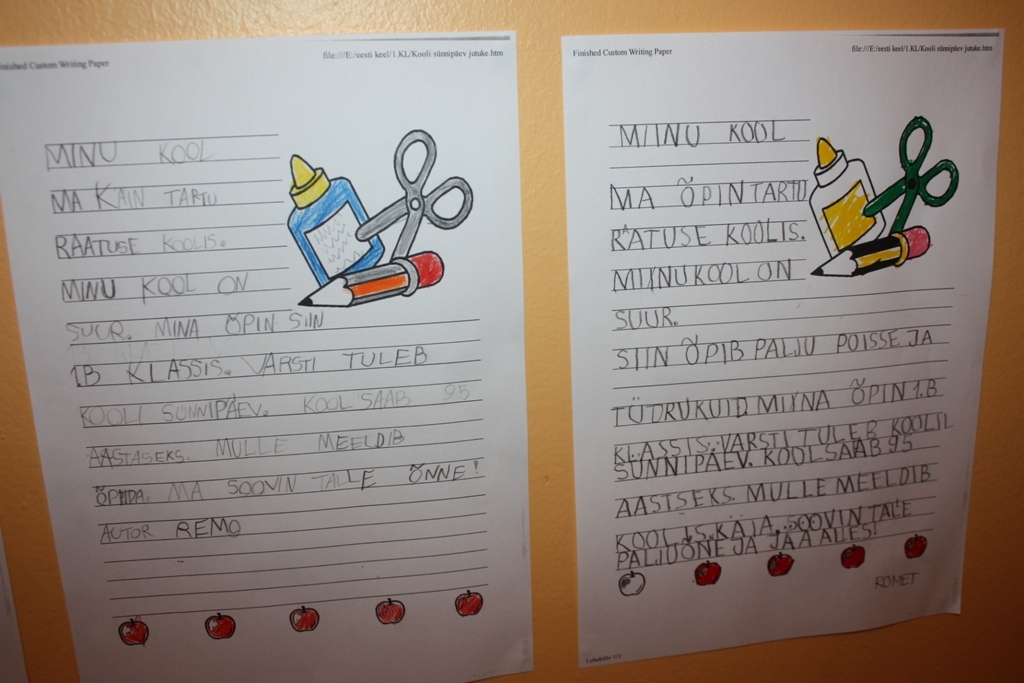 Finished Custom Writing Paper
file:///E:/eesti keel/1.KL/Kooli sünnipäev jutuke.htm
MINU KOOL
MA KÄIN TARTU
RAATUSE KOOLIS.
MINU KOOL ON
SUUR. MINA ÕPIN SIIN
1B KLASSIS. VARSTI TULEB
KOOLI SÜNNIPÄEV. KOOL SAAB 95
AASTASEKS. MULLE MEELDIB
ÕPPIDA. MA SOOVIN TALLE ÕNNE!
AUTOR REMO
Finished Custom Writing Paper
file:///E:/eesti keel/1.KL/Kooli sünnipäev jutuke.htm
MIINU KOOL
MA ÕPIN TARTU
RATUSE KOOLIS.
MIINU KOOL ON
SUUR.
SIIN ÕPIB PALJU POISSE JA
TÜDRUKUID MIINA ÕPIN 1.B
KLASSIS. VARSTI TULEB KOOLIL
SÜNNIPÄEV. KOOL SAAB 95
AASTSEKS. MULLE MEELDIB
KOOLIS KÄIA. SOOVIN TALE
PALJU ÕNE JA JÄÄ ALLES!
ROMET